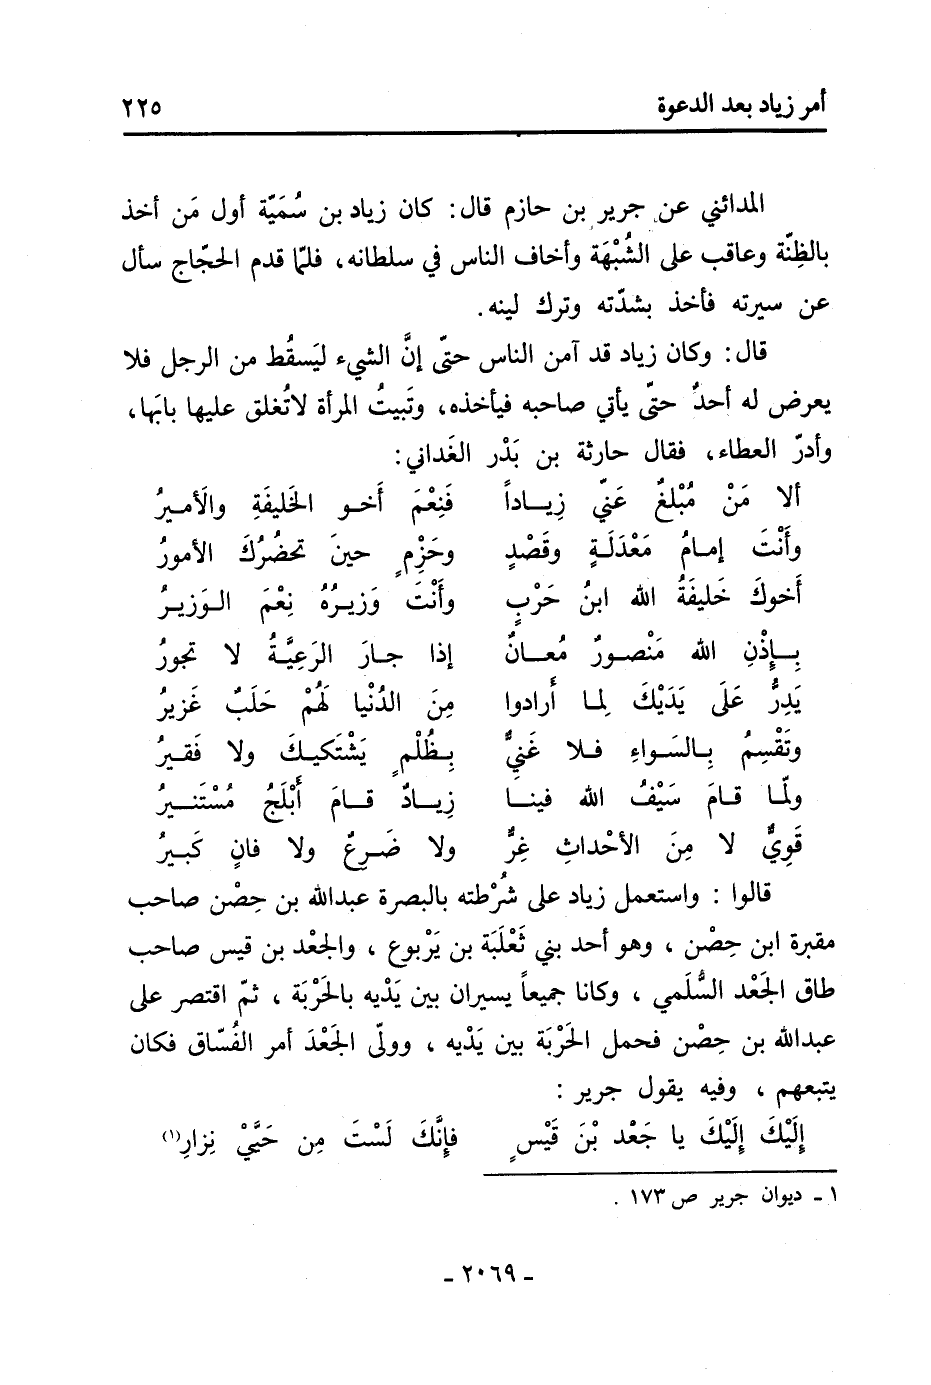 أمر زياد بعد الدعوة ٢٢٥
المدائني عن جرير بن حازم قال: كان زياد بن سُمَيّة أول مَن أخذ
بالظِنّة وعاقب على الشُبْهَة وأخاف الناس في سلطانه، فلمّا قدم الحجّاج سأل
عن سيرته فأخذ بشدّته وترك لينه.
قال: وكان زياد قد آمن الناس حتىّ إنَّ الشيء ليَسقُط من الرجل فلا
يعرض له أحدٌ حتىّ يأتي صاحبه فيأخذه، وتَبيتُ المرأة لاتُغلق عليها بابَها،
وأدرّ العطاء، فقال حارثة بن بَدْر الغَداني:
ألا مَنْ مُبْلغٌ عَنيّ زِيـاداً فَنِعْمَ أَخـو الخَليفَةِ والأميـرُ
وأَنْتَ إمـامُ مَعْدَلَـةٍ وقَصْدٍ وحَزْمٍ حينَ تحضُرُكَ الأمورُ
أَخوكَ خَليفَةُ الله ابنُ حَرْبٍ وأَنْتَ وَزيـرُهُ نِعْمَ الـوَزيـرُ
بـإذْنِ الله مَنْصـورٌ مُعـانٌ إذا جـارَ الرَعِيَّـةُ لا تجورُ
يَدِرُّ عَلَى يَدَيْكَ لِمـا أَرادوا مِنَ الدُنْيا لَهُمْ حَلَبٌ غَزيرُ
وتَقْسِمُ بِـالسَـواءِ فـلا غَنِيٌّ بِظُلْمٍ يَشْتَكيـكَ ولا فَقيـرُ
ولمّا قـامَ سَيْفُ الله فينـا زِيـادٌ قـامَ أَبْلَجُ مُسْتَنيـرُ
قَوِيٌّ لا مِنَ الأحْداثِ غِرٌّ ولا ضَـرِعٌ ولا فانٍ كَبيـرُ
قالوا : واستعمل زياد على شُرْطته بالبصرة عبدالله بن حِصْن صاحب
مقبرة ابن حِصْن ، وهو أحد بني ثَعْلَبَة بن يَرْبوع ، والجَعْد بن قيس صاحب
طاق الجَعْد السُّلَمي ، وكانا جميعاً يسيران بين يَدْيه بالحَرْبَة ، ثمّ اقتصر على
عبدالله بن حِصْن فحمل الحَرْبَة بين يَدْيه ، وولّى الجَعْدَ أمر الفُسّاق فكان
يتبعهم ، وفيه يقول جرير :
إلَيْكَ إلَيْكَ يا جَعْد بْنَ قَيْسٍ فإنَّكَ لَسْتَ مِن حَيَّيْ نِزارِ(١)
١ ـ ديوان جرير ص ١٧٣ .
ـ ٢٠٦٩ ـ